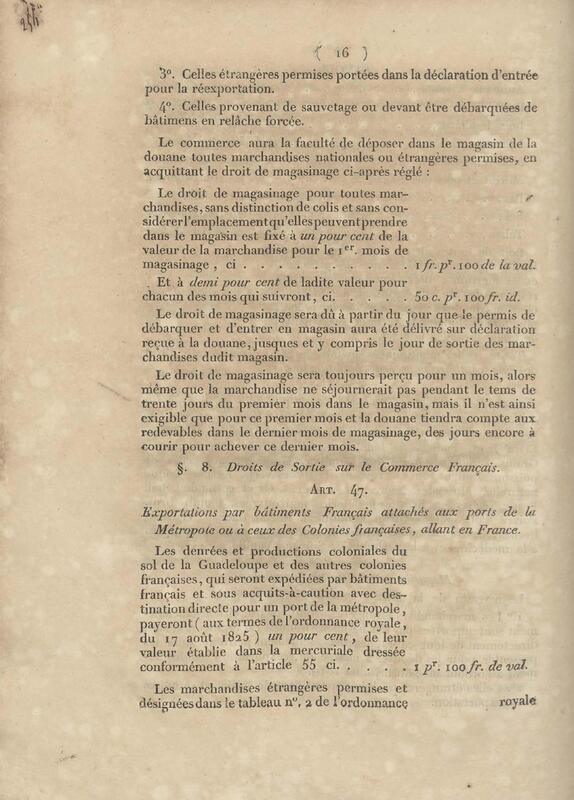 ( 16 )
3º. Celles étrangères permises portées dans la déclaration d'entrée
pour la réexportation.
4º. Celles provenant de sauvetage ou devant être débarquées de
bâtimens en relâche forcée.
Le commerce aura la faculté de déposer dans le magasin de la
douane toutes marchandises nationales ou étrangères permises, en
acquittant le droit de magasinage ci-après réglé :
Le droit de magasinage pour toutes mar-
chandises, sans distinction de colis et sans con-
sidérer l'emplacement qu'elles peuvent prendre
dans le magasin est fixé à un pour cent de la
valeur de la marchandise pour le 1er. mois de
magasinage, ci . . . . . . . . . . 1 fr. pr. 100 de la val.
Et à demi pour cent de ladite valeur pour
chacun des mois qui suivront, ci. . . . . 50 c. pr. 100 fr. id.
Le droit de magasinage sera dû à partir du jour que le permis de
débarquer et d'entrer en magasin aura été délivré sur déclaration
reçue à la douane, jusques et y compris le jour de sortie des mar-
chandises dudit magasin.
Le droit de magasinage sera toujours perçu pour un mois, alors
même que la marchandise ne séjournerait pas pendant le tems de
trente jours du premier mois dans le magasin, mais il n'est ainsi
exigible que pour ce premier mois et la douane tiendra compte aux
redevables dans le dernier mois de magasinage, des jours encore à
courir pour achever ce dernier mois.
§. 8. Droits de Sortie sur le Commerce Français.
ART. 47.
Exportations par bâtiments Français attachés aux ports de la
Métropole ou à ceux des Colonies françaises, allant en France.
Les denrées et productions coloniales du
sol de la Guadeloupe et des autres colonies
françaises, qui seront expédiées par bâtiments
français et sous acquits-à-caution avec des-
tination directe pour un port de la métropole,
payeront ( aux termes de l'ordonnance royale,
du 17 août 1825 ) un pour cent, de leur
valeur établie dans la mercuriale dressée
conformément à l'article 55 ci. . . . . 1 pr. 100 fr. de val.
Les marchandises étrangères permises et
désignées dans le tableau nº. 2 de l'ordonnance
royale